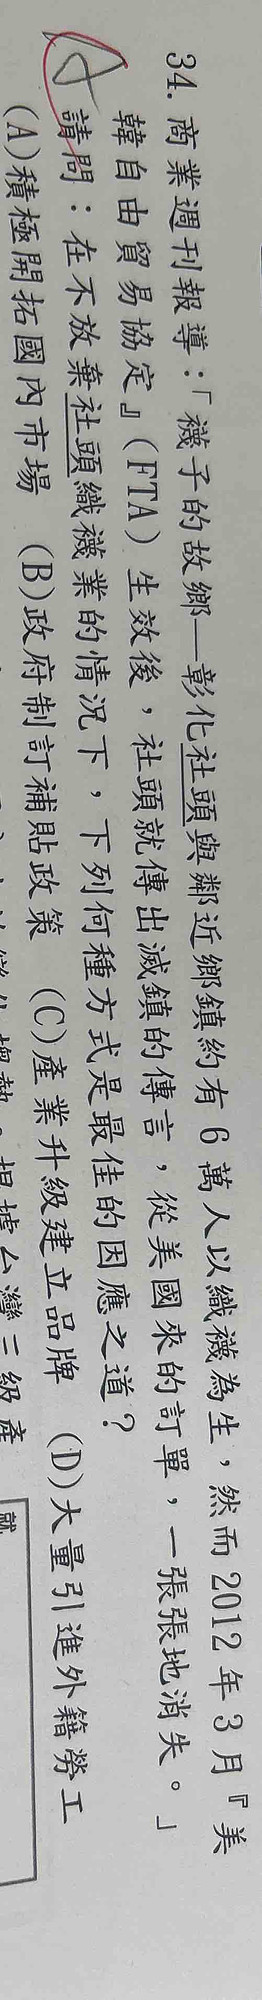 34. 商業週刊報導：「襪子的故鄉—彰化社頭與鄰近鄉鎮約有 6 萬人以織襪為生，然而 2012 年 3 月『美
韓自由貿易協定』(FTA) 生效後，社頭就傳出滅鎮的傳言，從美國來的訂單，一張張地消失。」
請問：在不放棄社頭織襪業的情況下，下列何種方式是最佳的因應之道？
(A)積極開拓國內市場 (B)政府制訂補貼政策 (C)產業升級建立品牌 (D)大量引進外籍勞工
根據台灣三級產
就